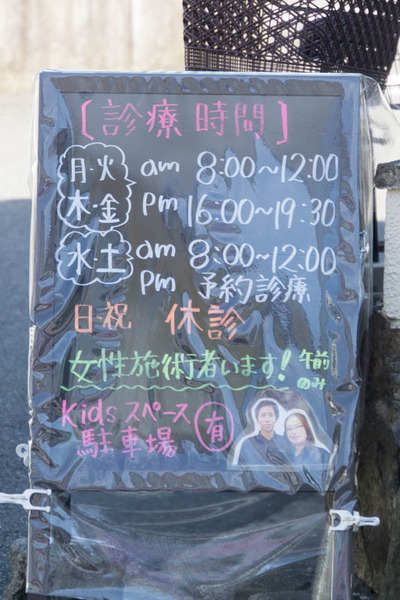 ［診療時間］
月・火 am 8:00〜12:00
木・金 pm 16:00〜19:30
水・土 am 8:00〜12:00
pm 予約診療
日・祝 休診
女性施術者います！午前のみ
Kidsスペース
駐車場 有